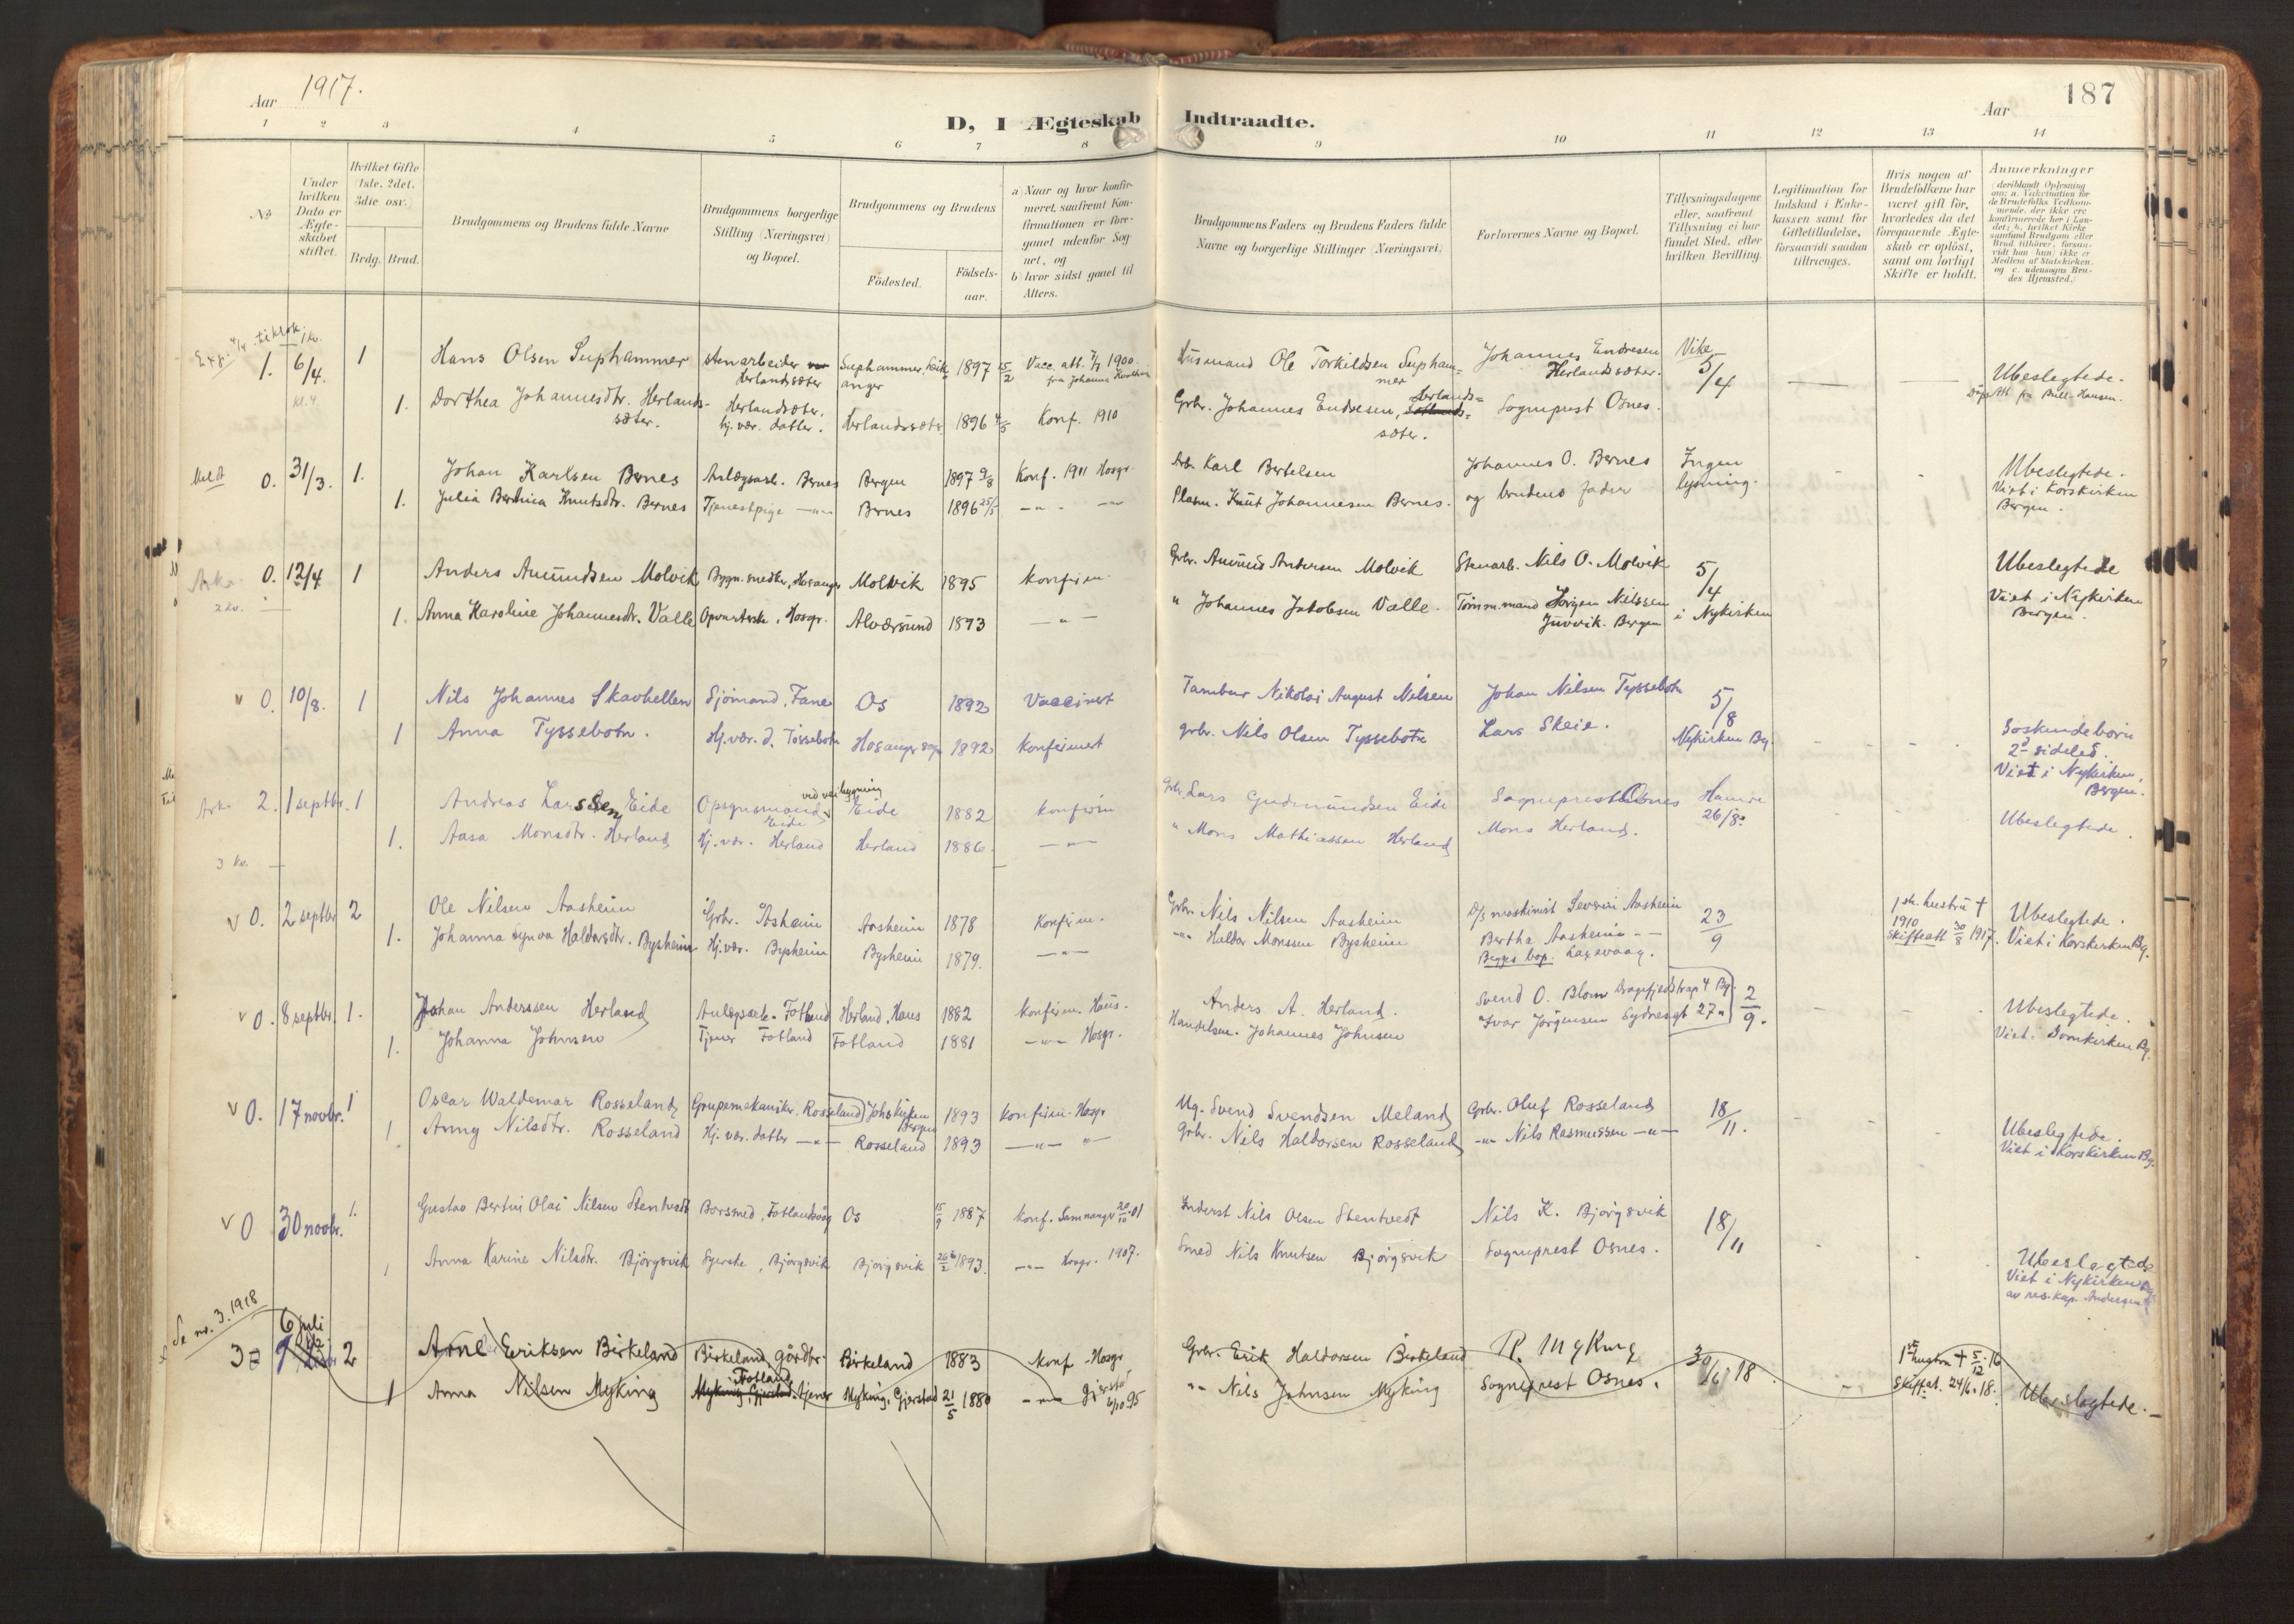 Aar 1917.
187
Aar
D, I Ægteskab Indtraadte.
1 2 3 4 5 6 7 8 9 10 11 12 13 14
No
Under hvilken Dato er Ægteskabet stiftet.
Hvilket Gifte (1ste, 2det, 3die osv.)
Brdg. Brud.
Brudgommens og Brudens fulde Navne
Brudgommens borgerlige Stilling (Næringsvei) og Bopæl.
Brudgommens og Brudens
Födested.
Födselsaar.
a) Naar og hvor konfirmeret, saafremt Konfirmationen er foregaaet udenfor Sognet, og
b) hvor sidst gaaet til Alters.
Brudgommens Faders og Brudens Faders fulde Navne og borgerlige Stillinger (Næringsvei)
Forlovernes Navne og Bopæl.
Tillysningsdagene eller, saafremt Tillysning ei har fundet Sted, efter hvilken Bevilling.
Legitimation for Indskud i Enkekassen samt for Giftetilladelse, forsaavidt saadan tiltrænges.
Hvis nogen af Brudefolkene har været gift för, hvorledes da det foregaaende Ægteskab er oplöst, samt om lovligt Skifte er holdt.
Anmærkninger (deriblandt Oplysning om: a. Vakcination for de Brudefolks Vedkommende, der ikke ere konfirmerede her i Landet; b. hvilket Kirkesamfund Brudgom eller Brud tilhörer, forsaavidt han (hun) ikke er Medlem af Statskirken, og c. udensogns Brudes Hjemsted.)
1. 6/4. 1 Hans Olsen Suphammer stenarbeider Herlandsæter Suphammer, 1897 15/2 Vacc. att. 7/7 1900. Husmand Ole Torkildsen Suphammer Johannes Endresen Herlandsæter. Vike 5/4 Ubeslegtede.
kl. 4. 1. Dorthea Johannesdtr. Herlandsæter. Herlandsæter, hj. vær. datter. Herlandsæter 1896 4/5 Konf. 1910 Grbr. Johannes Endresen, Herlandsæter. Sogneprest Osnes. Daabsatt. fra Bull-Hansen.
0. 31/3. 1. Johan Karlsen Bernes Anlægsarb. Bernes Bergen 1897 9/8 Konf. 1911 Hosgr. Arb. Karl Bertelsen Johannes O. Bernes Ingen lysning. Ubeslegtede.
1. Julia Bertina Knutsdtr. Bernes Tjenestpige -"- Bernes 1896 25/5 -"- -"- Plasm. Knut Johannesen Bernes. og brudens fader Viet i Korskirken Bergen.
0. 12/4 1 Anders Amundsen Molvik Bygn. snedker, Hosanger Molvik 1895 Konfirm. Grbr. Amund Andersen Molvik Stenarb. Nils O. Molvik 5/4 Ubeslegtede
2 kv. 1. Anna Karoline Johannesdtr. Valle Opvarterske, Hosgr. Alværsund 1893 -"- " Johannes Jakobsen Valle. Tømm.mand Jörgen Nilssen Juvvik. Bergen i Nykirken Viet i Nykirken Bergen.
v 0. 10/8. 1 Nils Johannes Skavhellen Sjömand, Fane Os 1892 Vaccinert Tambur Nikolai August Nilsen Johan Nilsen Tyssebotn 5/8
1 Anna Tyssebotn. Hj. vær. d. Tössebotn Hosanger sogn 1892 Konfirmert grbr. Nils Olsen Tyssebotn Lars Skeie. Nykirken Bg. Söskendebörn 2d sideled. Viet i Nykirken, Bergen.
2. 1 septbr. 1 Andreas Larssen Eide Opsynsmand ved veibygning Eide Eide 1882 Konfirm Grbr. Lars Gudmundsen Eide Sogneprest Osnes Hamre 26/8. Ubeslegtede.
3 kv. 1. Aasa Monsdtr. Herland Hj. vær. Herland Herland 1886. -"- " Mons Mathiassen Herland Mons Herland.
v 0. 2 septbr 2 Ole Nilsen Aasheim Grbr. Åsheim Aasheim 1878 Konfirm. Grbr. Nils Nilsen Aasheim D/s maskinist Severin Aasheim 23/9 1ste hustru † 1910 Skifteatt 30/8 1917. Ubeslegtede.
1. Johanna Synva Haldorsdtr. Bysheim Hj. vær. Bysheim Bysheim 1879. -"- -"- Haldor Monssen Bysheim Bertha Aasheim -"- Begges bop. Laxevaag. Viet i Korskirken Bg.
v 0. 8 septbr. 1. Johan Anderssen Herland Anlegsarb. Fotland Herland, Haus 1882 Konfirm. Haus. Anders A. Herland. Svend O. Blom Dragefjeldstrap 4 Bg. 2/9. Ubeslegtede.
1. Johanna Johnsen Tjener Fotland Fotland 1881 -"- Hosgr. Handelsm. Johannes Johnsen Ivar Jörgensen Sydnesgt 27 " Viet i Domkirken Bg.
v 0. 17 novbr. 1 Oscar Waldemar Rosseland Grupemekaniker. Rosseland Johskirken Bergen 1893 Konfirm. Hosgr Ug. Svend Svendsen Meland Grbr. Oluf Rosseland 18/11. Ubeslegtede.
1. Anny Nilsdtr. Rosseland Hj. vær. datter -"- Rosseland 1893 -"- " Grbr. Nils Haldorsen Rosseland -"- Nils Rasmussen -"- Viet i Korskirken Bg.
v 0 30 novbr. 1. Gustav Bertin Olai Nilsen Stentvedt Borsmed, Fotlandsvåg Os 15/9 1887 Konf. Samnanger 20/10.01 Inderst Nils Olsen Stentvedt Nils K. Bjørgsvik 18/11
1 Anna Karine Nilsdtr. Bjørgsvik Syerske, Bjørgsvik Bjørgsvik 26/2 1893. -"- Hosgr. 1907. Smed Nils Knutsen Bjørgsvik Sogneprest Osnes. Ubeslegtede Viet i Nykirken Bg av res.kap. Andersen
Se nr. 3. 1918
6 juli
3 2 Arne Eriksen Birkeland Birkeland, gårdbr. Birkeland 1883 Konf. Hosgr Grbr. Erik Haldorsen Birkeland R. Myking 30/6 18. 1ste hustru † 5/12.16 Skifteat. 24/6.18. Ubeslegtede.
1 Anna Nilsen Myking Fotland, tjener Myking, Gjerstad 21/5 1880 -"- Gjerstad 6/10 95 " Nils Johnsen Myking Sogneprest Osnes.